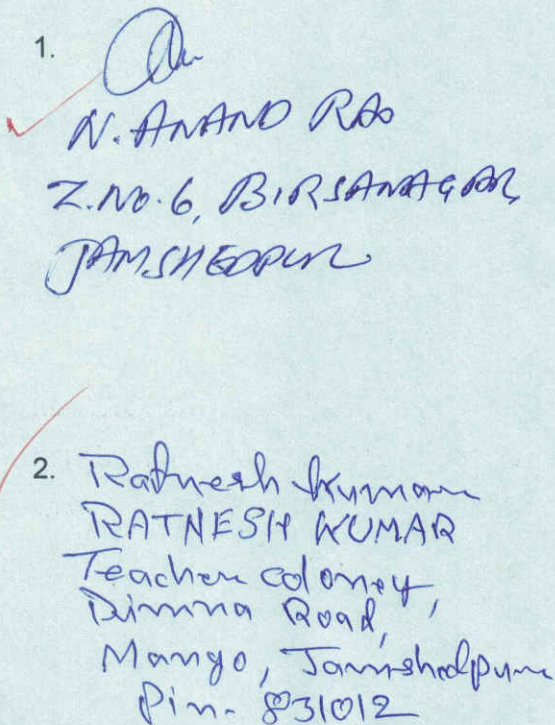 1.
N. ANAND RAO
Z. NO. 6, BIRSANAGAR,
JAMSHEDPUR
2. Ratnesh Kumar
RATNESH KUMAR
Teacher colony,
Dimna Road,
Mango, Jamshedpur
Pin- 831012